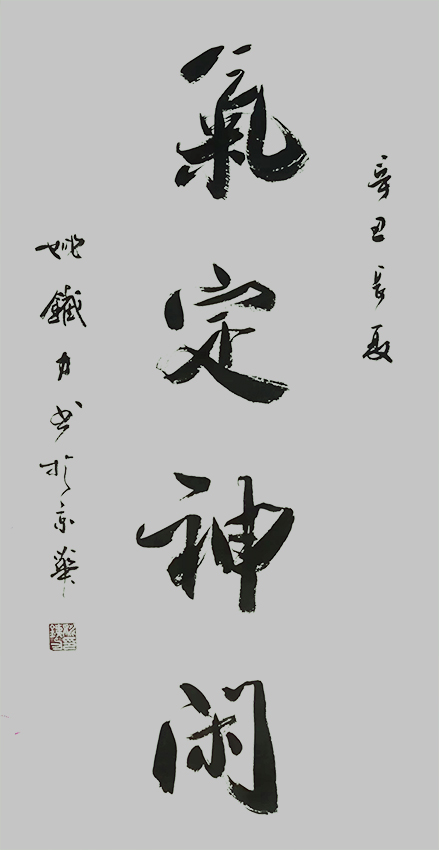 辛丑長夏
氣定神闲
姚鐵力书於京華